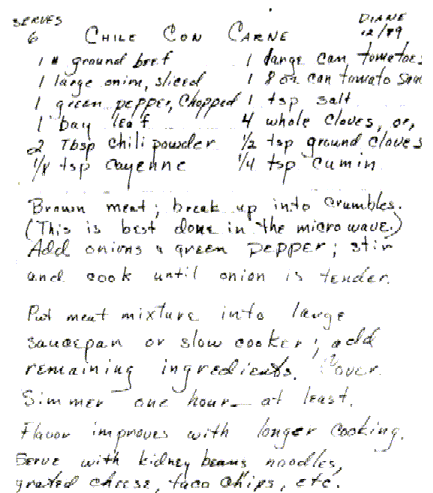 SERVES DIANE
6 CHILE CON CARNE 12/79
1 # ground beef 1 large can tomatoes
1 large onion, sliced 1 8 oz can tomato sau
1 green pepper, chopped 1 tsp salt
1 bay leaf 4 whole cloves, or,
2 Tbsp chili powder 1/2 tsp ground cloves
1/8 tsp cayenne 1/4 tsp cumin
Brown meat; break up into crumbles.
(This is best done in the microwave.)
Add onions & green pepper; stir
and cook until onion is tender.
Put meat mixture into large
saucepan or slow cooker; add
remaining ingredients. Cover.
Simmer one hour at least.
Flavor improves with longer cooking.
Serve with kidney beans, noodles,
grated cheese, taco chips, etc.